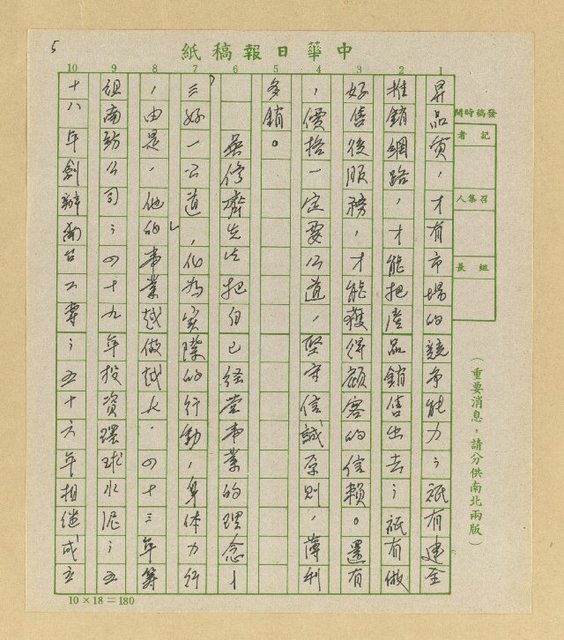 5
中華日報稿紙
發稿時間
記者
召集人
組長
（重要消息，請分供南北兩版）
1 2 3 4 5 6 7 8 9 10
昇品質，才有市場的競爭能力；祇有建全
推銷網路，才能把產品銷售出去；祇有做
好售後服務，才能獲得顧客的信賴。還有
，價格一定要公道，堅守信誠原則，薄利
多銷。
吳修齊先生把自己經營事業的理念—
「三好一公道」，化為實際的行動，身體力行
，由是，他的事業越做越大。四十三年籌
組南紡公司；四十九年投資環球水泥；五
十八年創辦南台工專；五十六年相繼成立
10×18＝180